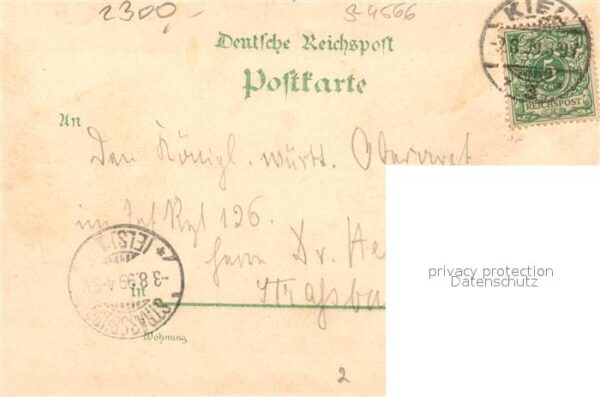 2300,-
S-4566
KIEL
5
REICHSPOST
Deutsche Reichspost
Postkarte
An
Den Königl. württ. Oberarzt
im Inf Rgt 126.
Herrn Dr. He
in Straßbu
Wohnung
STRASSBURG
(ELS)
-3.8.99.4-5
2
privacy protection
Datenschutz